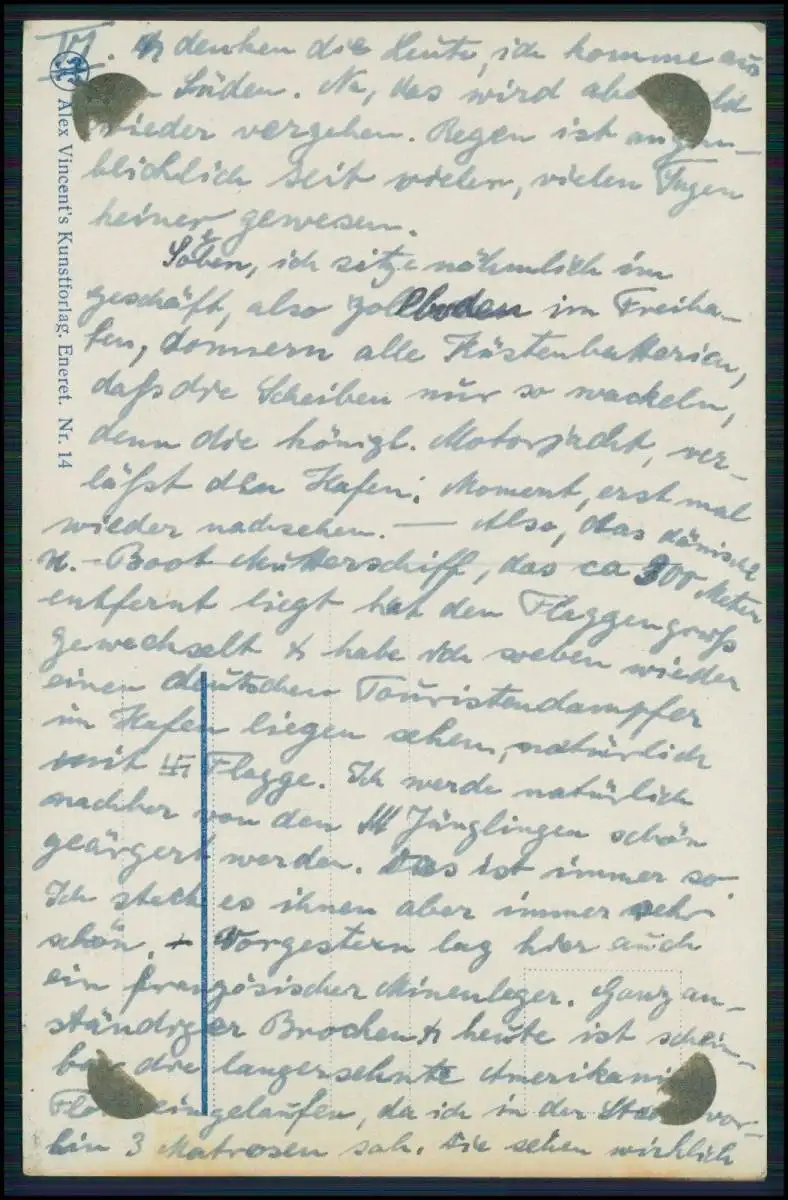 VI. & denken die Leute, ich komme aus
Süden. Na, das wird aber bald
wieder vergehen. Regen ist augen-
blicklich seit vielen, vielen Tagen
keiner gewesen.
Soeben, ich sitze nähmlich im
geschäft, also Zollboden im Freiha-
fen, donnern alle Küstenbatterien,
daß die Scheiben nur so wackeln,
denn die königl. Motorjacht, ver-
läßt den Hafen. Moment, erst mal
wieder nachsehen. — Also, das dänische
U.-Boot Mutterschiff, das ca 300 Meter
entfernt liegt hat den Flaggengruß
gewechselt & habe ich soeben wieder
einen deutschen Touristendampfer
im Hafen liegen sehen, natürlich
mit 卐 Flagge. Ich werde natürlich
nachher von den Jünglingen schön
geärgert werden. Das ist immer so
Ich steck es ihnen aber immer sehr
schön. + Vorgestern lag hier auch
ein französischer Minenleger. Ganz an-
ständiger Brocken & heute ist schein-
bar die langersehnte Amerikani
Flo eingelaufen, da ich in der Stadt vor-
hin 3 Matrosen sah. Die sehen wirklich
Alex Vincent's Kunstforlag. Eneret. Nr. 14